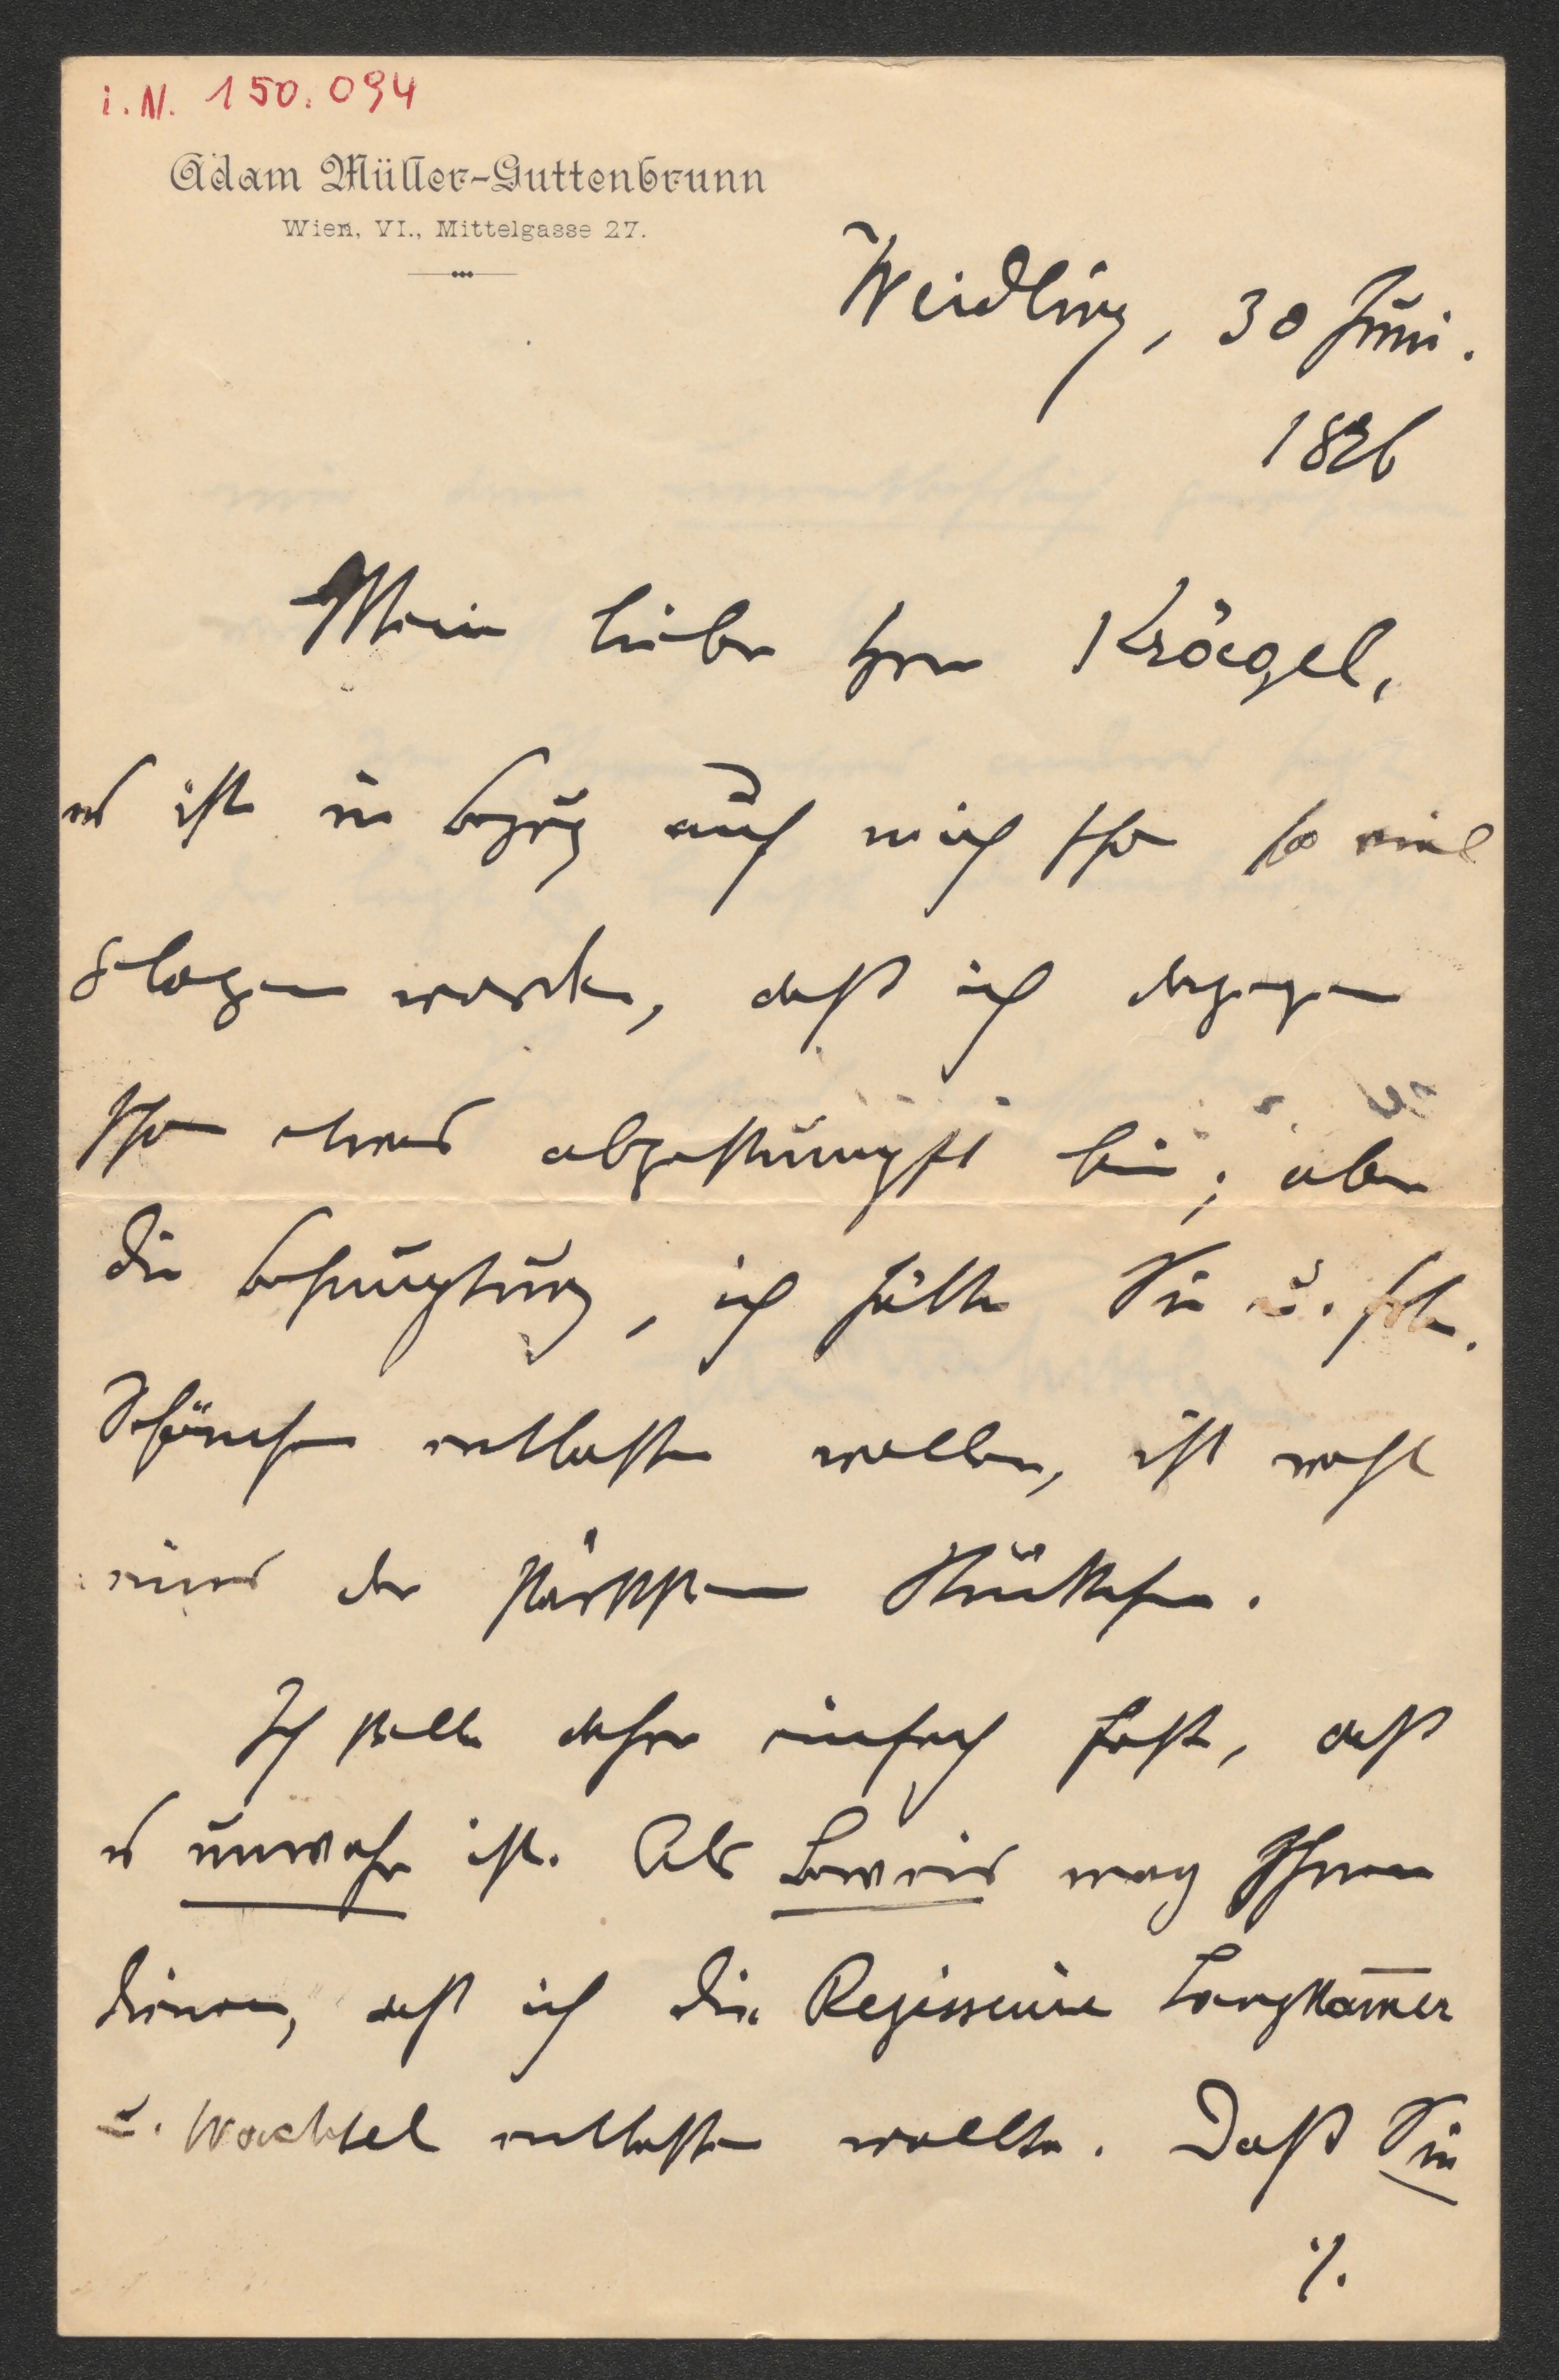 i. N. 150.094
Adam Müller-Guttenbrunn
Wien, VI., Mittelgasse 27.
Weidling, 30 Juni.
1896
Mein lieber Herr Kröegel,
es ist in Bezug auf mich schon so viel
gelogen worden, daß ich dagegen
schon etwas abgestumpft bin; aber
die Behauptung, ich hätte Sie u. Frl.
Schönchen entlassen wollen, ist wohl
eines der stärksten Stückchen.
Ich stelle daher einfach fest, daß
es unwahr ist. Als Beweis mag Ihnen
dienen, daß ich die Regisseure Langkam̅er
u. Wachtel entlassen wollte. Daß Sie
·/.